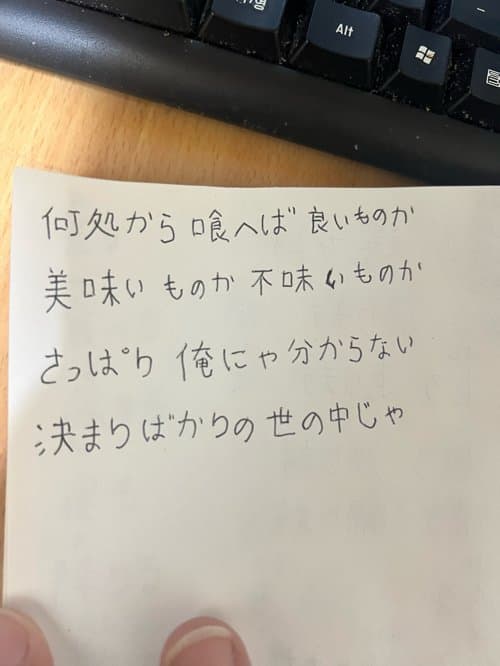 Alt
何処から 喰へば 良いものか
美味い ものか 不味いものか
さっぱり 俺にゃ 分からない
決まりばかりの 世の中じゃ